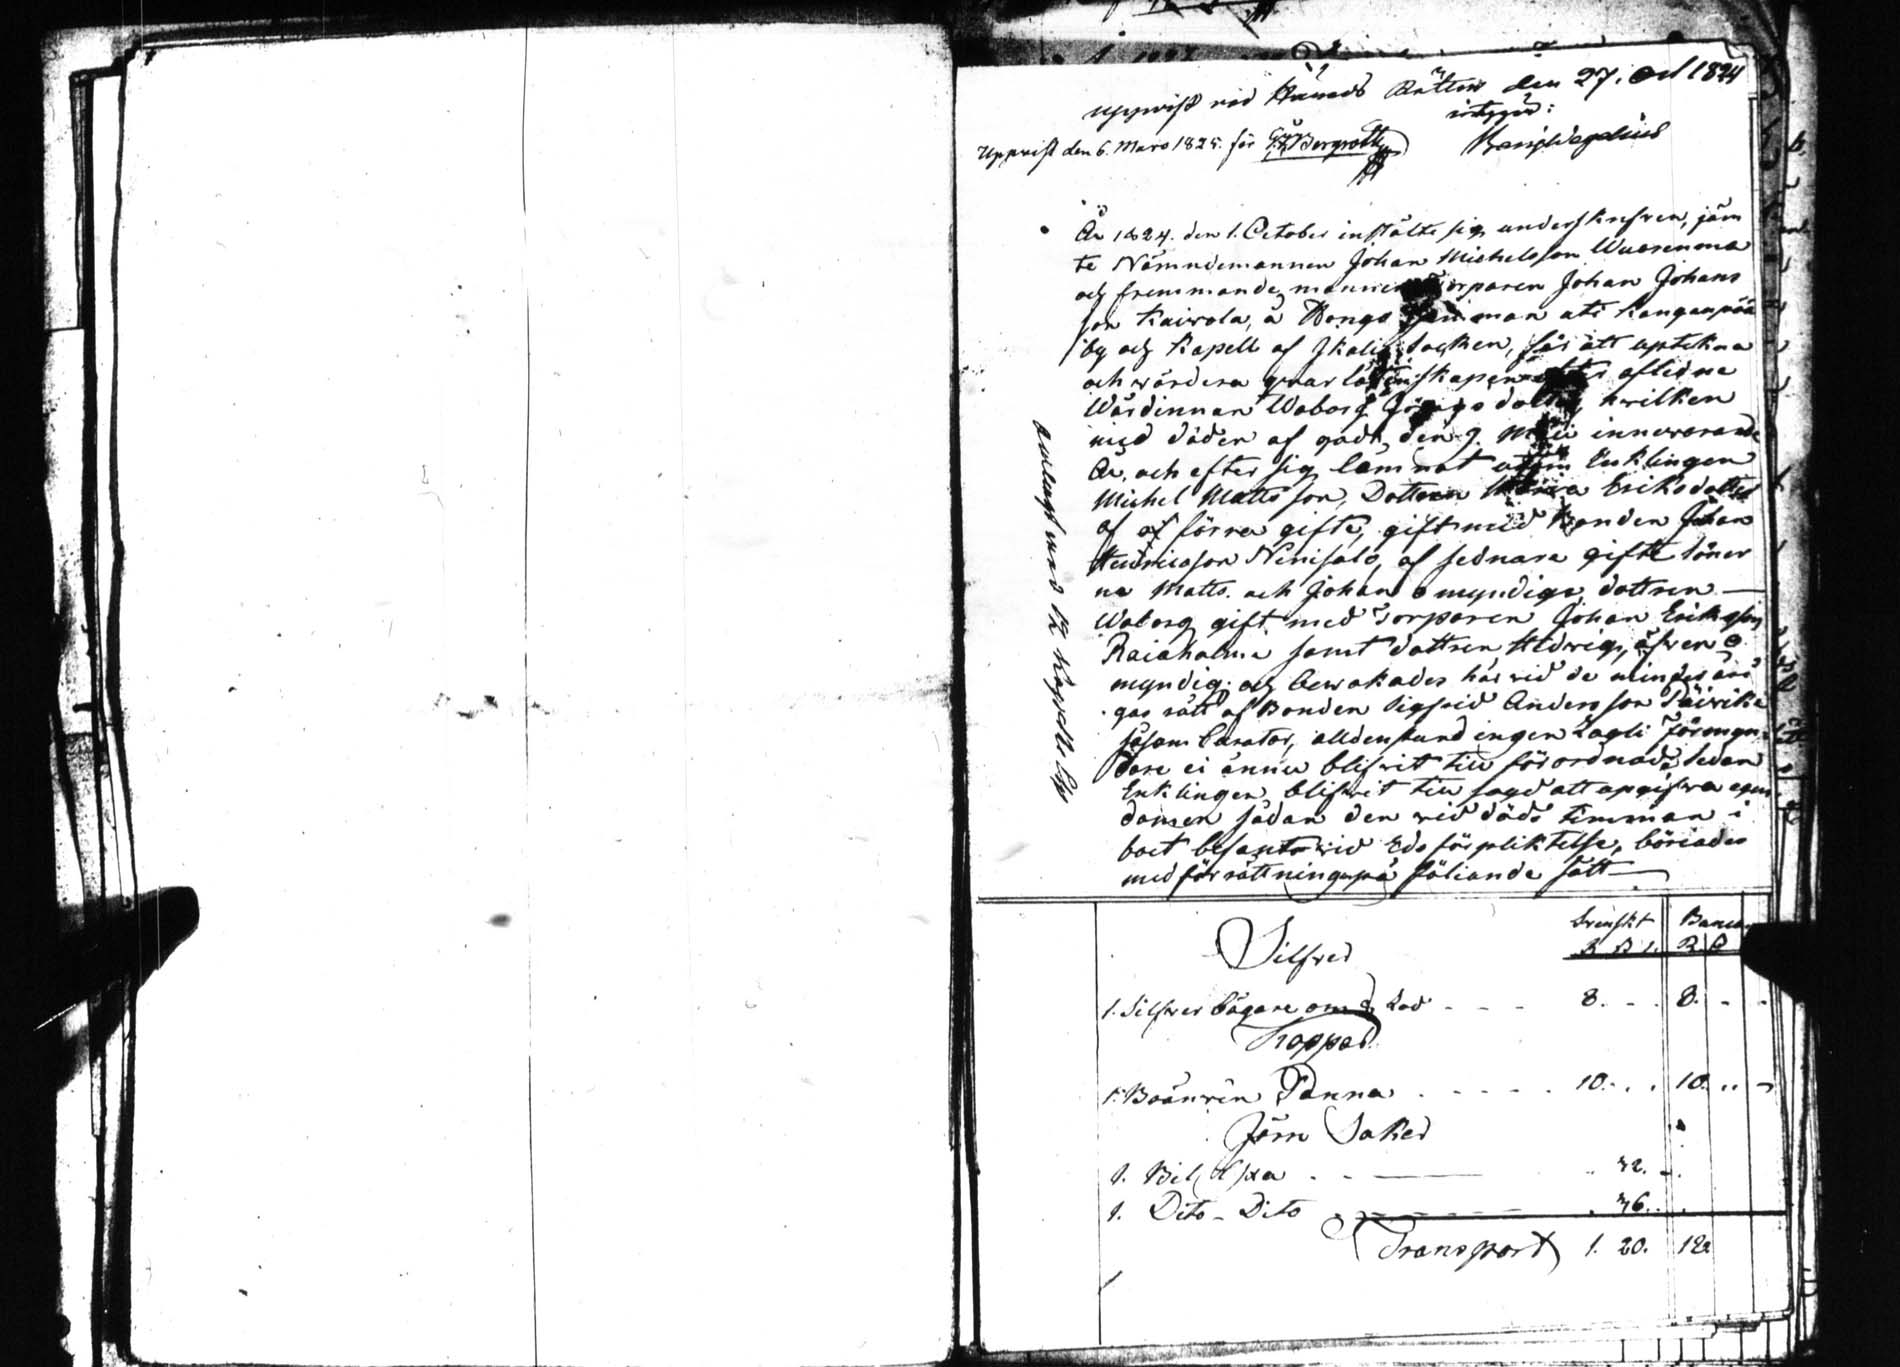 Uppvist vid Härads Rätten den 27. Oct 1824
intygar:
Uppvist den 6. Mars 1825. för Bergroth
År 1824. den 1. October instälte sig underskrefven, jäm
te Nämndemannen Johan Michelsson Wuorenma
och fremmande mannen Torparen Johan Johans
son Kaivola, å Bongo Hemman uti Kangenpää
by och Kapell af Ikalis Socken, för att uptekna
och värdera qvarlåtenskapen efter aflidne
Wärdinnan Waborg Jöransdotter, hvilken
med döden af gådt, den 9. Maii innevarande
År, och efter sig lämnat utom Enklingen
Michel Mattsson, Dottren Maria Eriksdotter
af förra gifte, gift med Bonden Johan
Hendricsson Niinisalo, af sednare gifte söner
na Matts. och Johan omyndige, dottren —
Waborg gift med Torparen Johan Eriksson
samt dottren Hedvig, äfven o
myndig. och bevakades här vid de minderåri
gas rätt af Bonden Sigfrid Andersson Päivike
såsom Curator, alldenstund ingen Laglig Förmyn
dare ei ännu blifvit till förordnad, Sedan
Enklingen blifvit till sagd att upgifva egen
domen sådan den vid döds timman i
boet befants vid Eds förpliktelse, böriades
med förrättningen på föliande sätt —
Silfver
Svenskt Banco
1. Silfver bägare om 8 Lod - - - 8. - . 8. - -
Koppar
1. Bränvin Panna . - - - - 10. . . 10. . .
Järn Saker
1. Bil Yxa . - — . 32. -
1. Dito - Dito . 36.
Transport 1. 20. 18